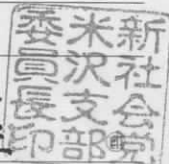 新社会党
米沢支部
委員長印